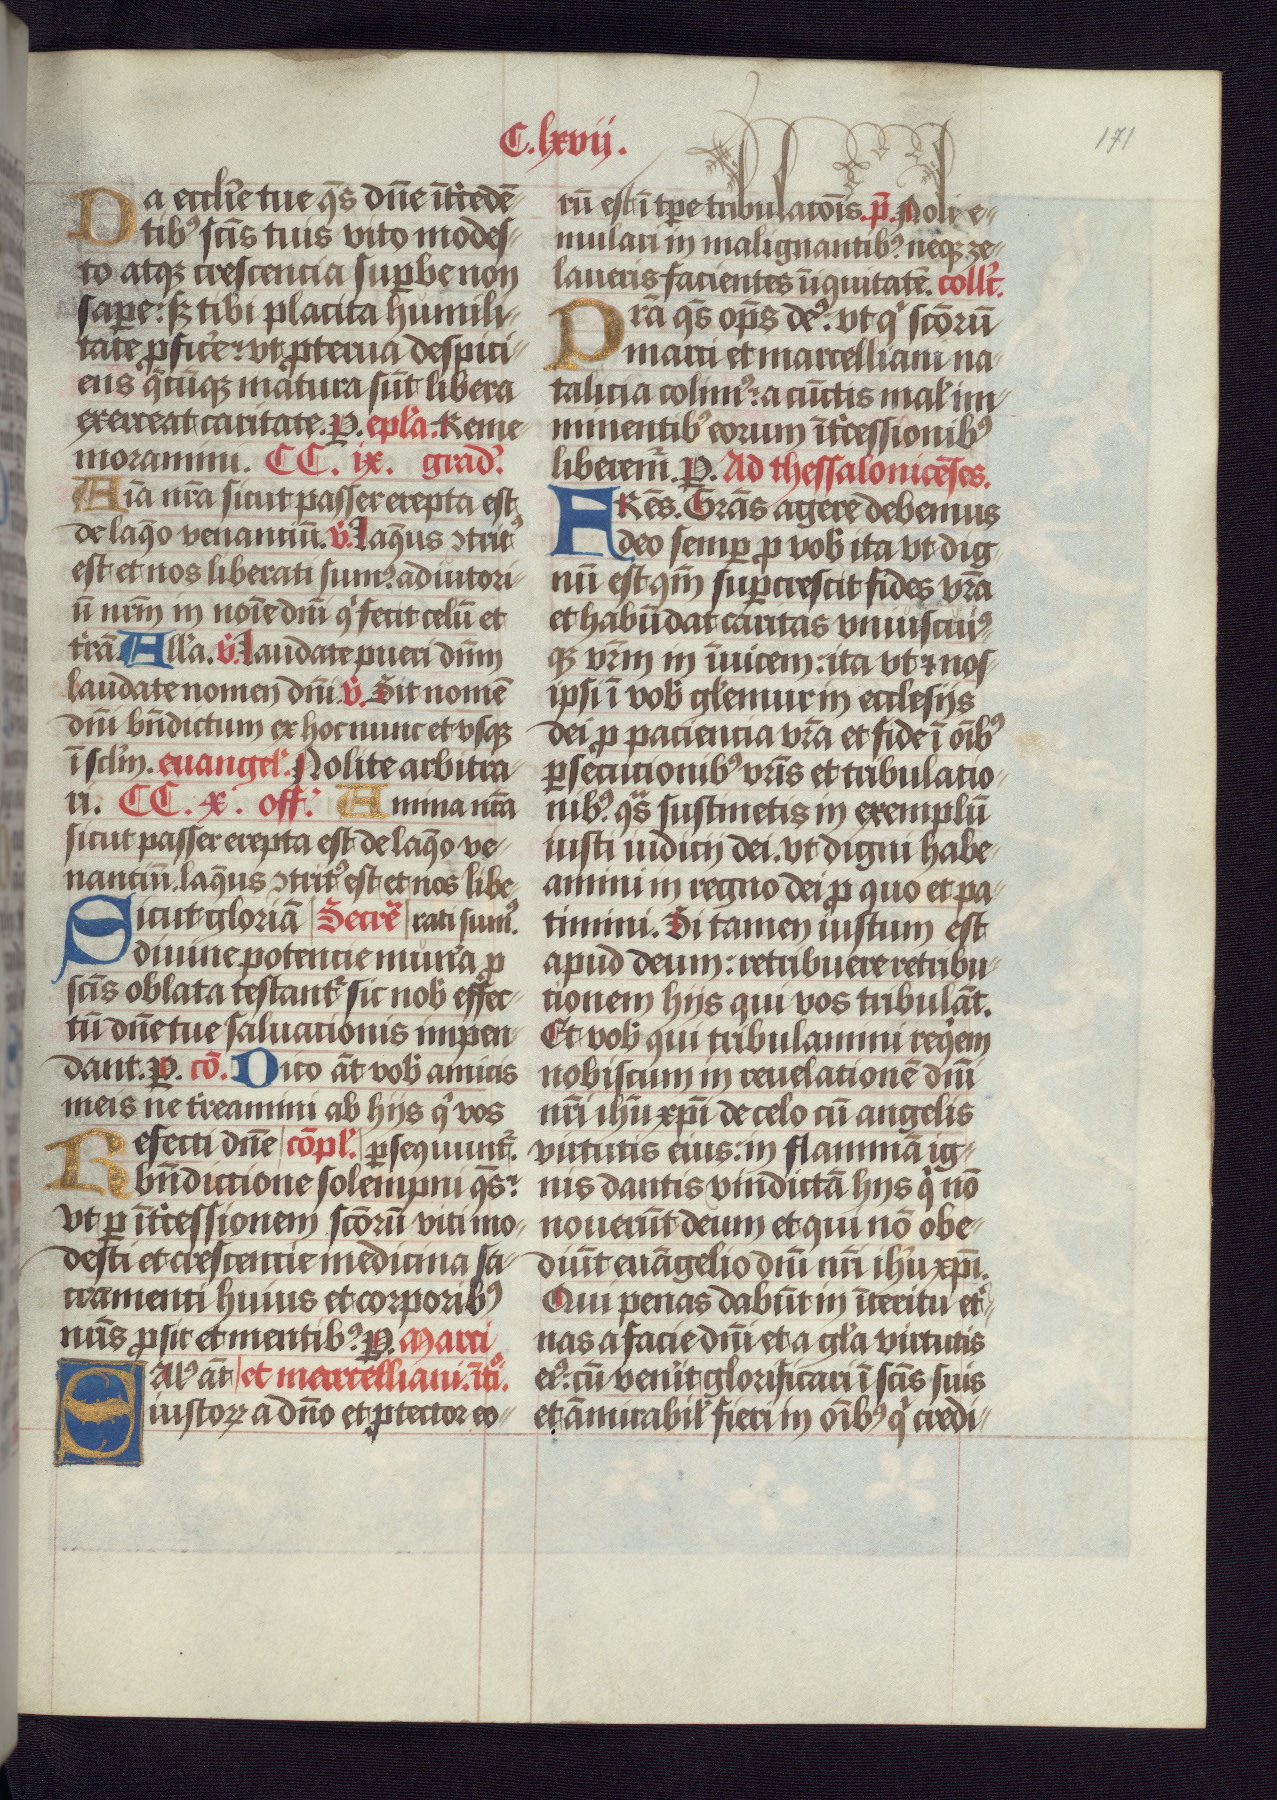 C. lxvii.
171
Da eccl'ie tue q̄s dn̄e īt'cedē-
tib9 sc̄is tuis vito modes-
to atq3 crescencia sup̱be non
sap̱e: s3 tibi placita humili-
tate ꝓfic'e: vt ꝓterua despici-
ens q̄cūq3 matura sūt libera
exerceat caritate. P. ep'la. Reme-
moramini. CC. ix. grad'.
Aīa nr̄a sicut passer erepta est
de laq'o venanciū. v̄. laq'us ꝯtrit9
est et nos liberati sum9: adiutori-
ū nr̄m in noīe dn̄i q' fecit celū et
t'rā. All'a. v̄. laudate pueri dn̄m
laudate nomen dn̄i. v̄. Sit nomē
dn̄i bn̄dictum ex hoc nunc et vsq3
ī sc'lm. euangel'. Nolite arbitra-
ri. CC. x. off'. Anima nr̄a
sicut passer erepta est de laq'o ve-
nanciū. laq'us ꝯtrit9 est et nos libe-
Sicut gloriā Secre' rati sum9.
diuine potencie mun'a ꝓ
sc̄is oblata testant' sic nob effec-
tū dn̄e tue saluacionis impen-
dant. P. cō. Dico āt vob' amicis
meis ne t'reamini ab hijs q' vos
Refecti dn̄e cōpl'. p̱sequunt'.
bn̄dictione solempni q̄s:
vt p̱ īt'cessionem sc̄orū viti mo-
desti et crescencie medicina sa-
cramenti huius et corporib9
nr̄is ꝓsit et mentib9. P. Marci
Sal9 āt et marcelliani. īt'o.
iustoꝝ a dn̄o et ꝓtector eo-
rū est ī tp̱e tribulatōis. p̄. Noli e-
mulari in malignantib9. neq3 ze-
laueris facientes īiquitatē. coll'c.
Pr̄a q̄s op̄s de9: vt q' sc̄orū
marci et marcelliani na-
talicia colim9: a cūctis mal' im-
minentib9 eorum īt'cessionib9
liberem'. P. Ad thessalonicēses.
FRēs. Gr̄as agere debemus
deo semp̱ ꝓ vob' ita vt dig-
nū est qm̄ sup̱crescit fides vr̄a
et habūdat caritas vniuscui9-
q3 vr̄m in īuicem: ita vt ⁊ nos-
ipsi ī vob' gl'emur in ecclesijs
dei ꝓ paciencia vr̄a et fide ī oīb9
p̱secucionib9 vr̄is et tribulatio-
nib9. q̄s sustinetis in exemplū
iusti iudicij dei. vt digni habe-
amini in regno dei ꝓ quo et pa-
timini. Si tamen iustum est
apud deum: retribuere retribu-
tionem hijs qui vos tribulāt.
Et vob' qui tribulamini req'em
nobiscum in reuelationē dn̄i
nr̄i ih'u xp̄i de celo cū angelis
virtutis eius: in flammā ig-
nis dantis vindictā hijs q' nō
nouerūt deum et qui nō obe-
diūt euāgelio dn̄i nr̄i ih'u xp̄i.
Qui penas dabūt in īteritu et'-
nas a facie dn̄i et a gl'a virtutis
ei9: cū ven'it glorificari ī sc̄is suis
et āmirabil' fieri in oīb9 q' credi-